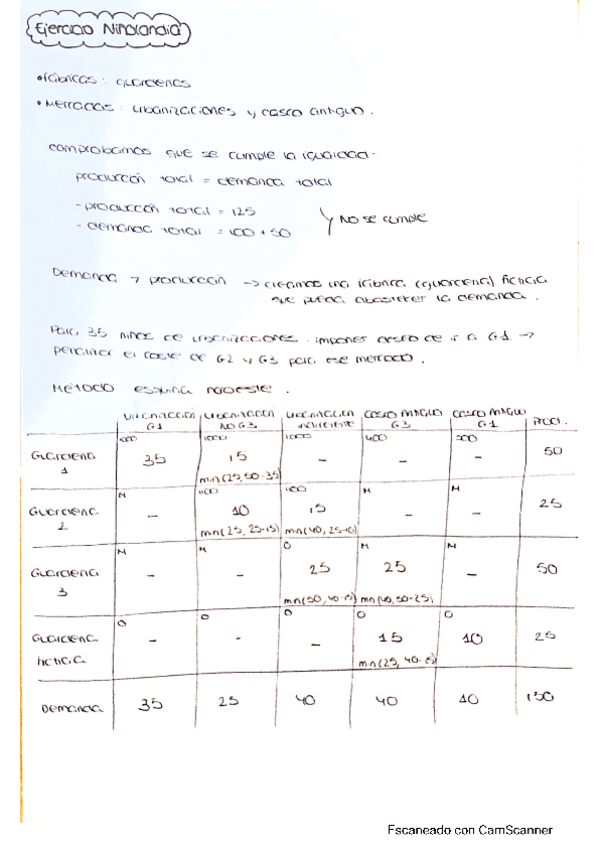 Ejercicio Niñolandia
• Fábricas: guarderías
• Mercados: urbanizaciones y casco antiguo.
Comprobamos que se cumple la igualdad.
producción total = demanda total
- producción total = 125
- demanda total = 100 + 50
} NO se cumple
Demanda > producción → creamos una fábrica (guardería) ficticia
que pueda abastecer la demanda.
Para 35 niños de urbanizaciones imponer deseo de ir a G1 →
penalizar el coste de G2 y G3 para ese mercado.
Método esquina noroeste.
urbanización G1 urbanización NO G3 urbanización indiferente casco antiguo G3 casco antiguo G1 Prod.
Guardería 1 35 1000 15 min(25,50-35) 1000 - 400 - - 50
Guardería 2 M - 10 min(25, 25-15) 15 min(40, 25-10) M - M - 25
Guardería 3 M - M - 0 25 min(50, 40-15) M 25 min(40, 50-25) M - 50
Guardería ficticia 0 - 0 - 0 - 0 15 min(25, 40-25) 0 10 25
Demanda 35 25 40 40 10 150
Escaneado con CamScanner